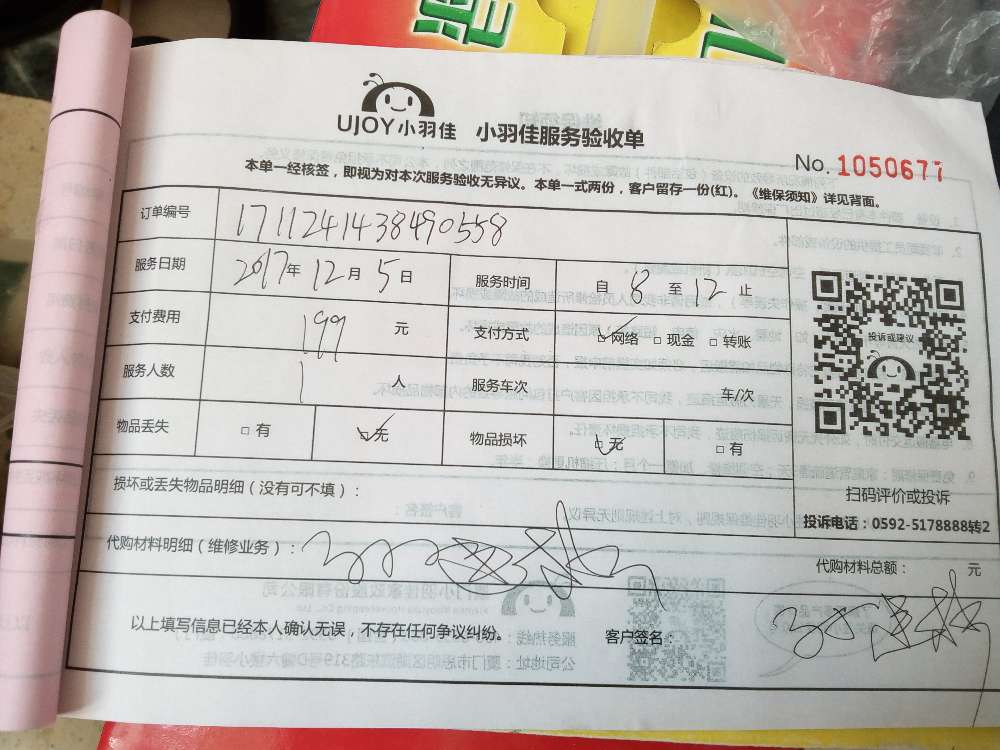 UJOY小羽佳 小羽佳服务验收单
No. 1050677
本单一经核签，即视为对本次服务验收无异议。本单一式两份，客户留存一份(红)。《维保须知》详见背面。
订单编号 1711241438490558
服务日期 2017年 12月 5日 服务时间 自 8 至 12 止
支付费用 199 元 支付方式 ☑网络 □现金 □转账
服务人数 1 人 服务车次 车/次
物品丢失 □有 ☑无 物品损坏 ☑无 □有
投诉或建议
扫码评价或投诉
投诉电话：0592-5178888转2
损坏或丢失物品明细（没有可不填）：
代购材料明细（维修业务）：
代购材料总额： 元
以上填写信息已经本人确认无误，不存在任何争议纠纷。 客户签名：